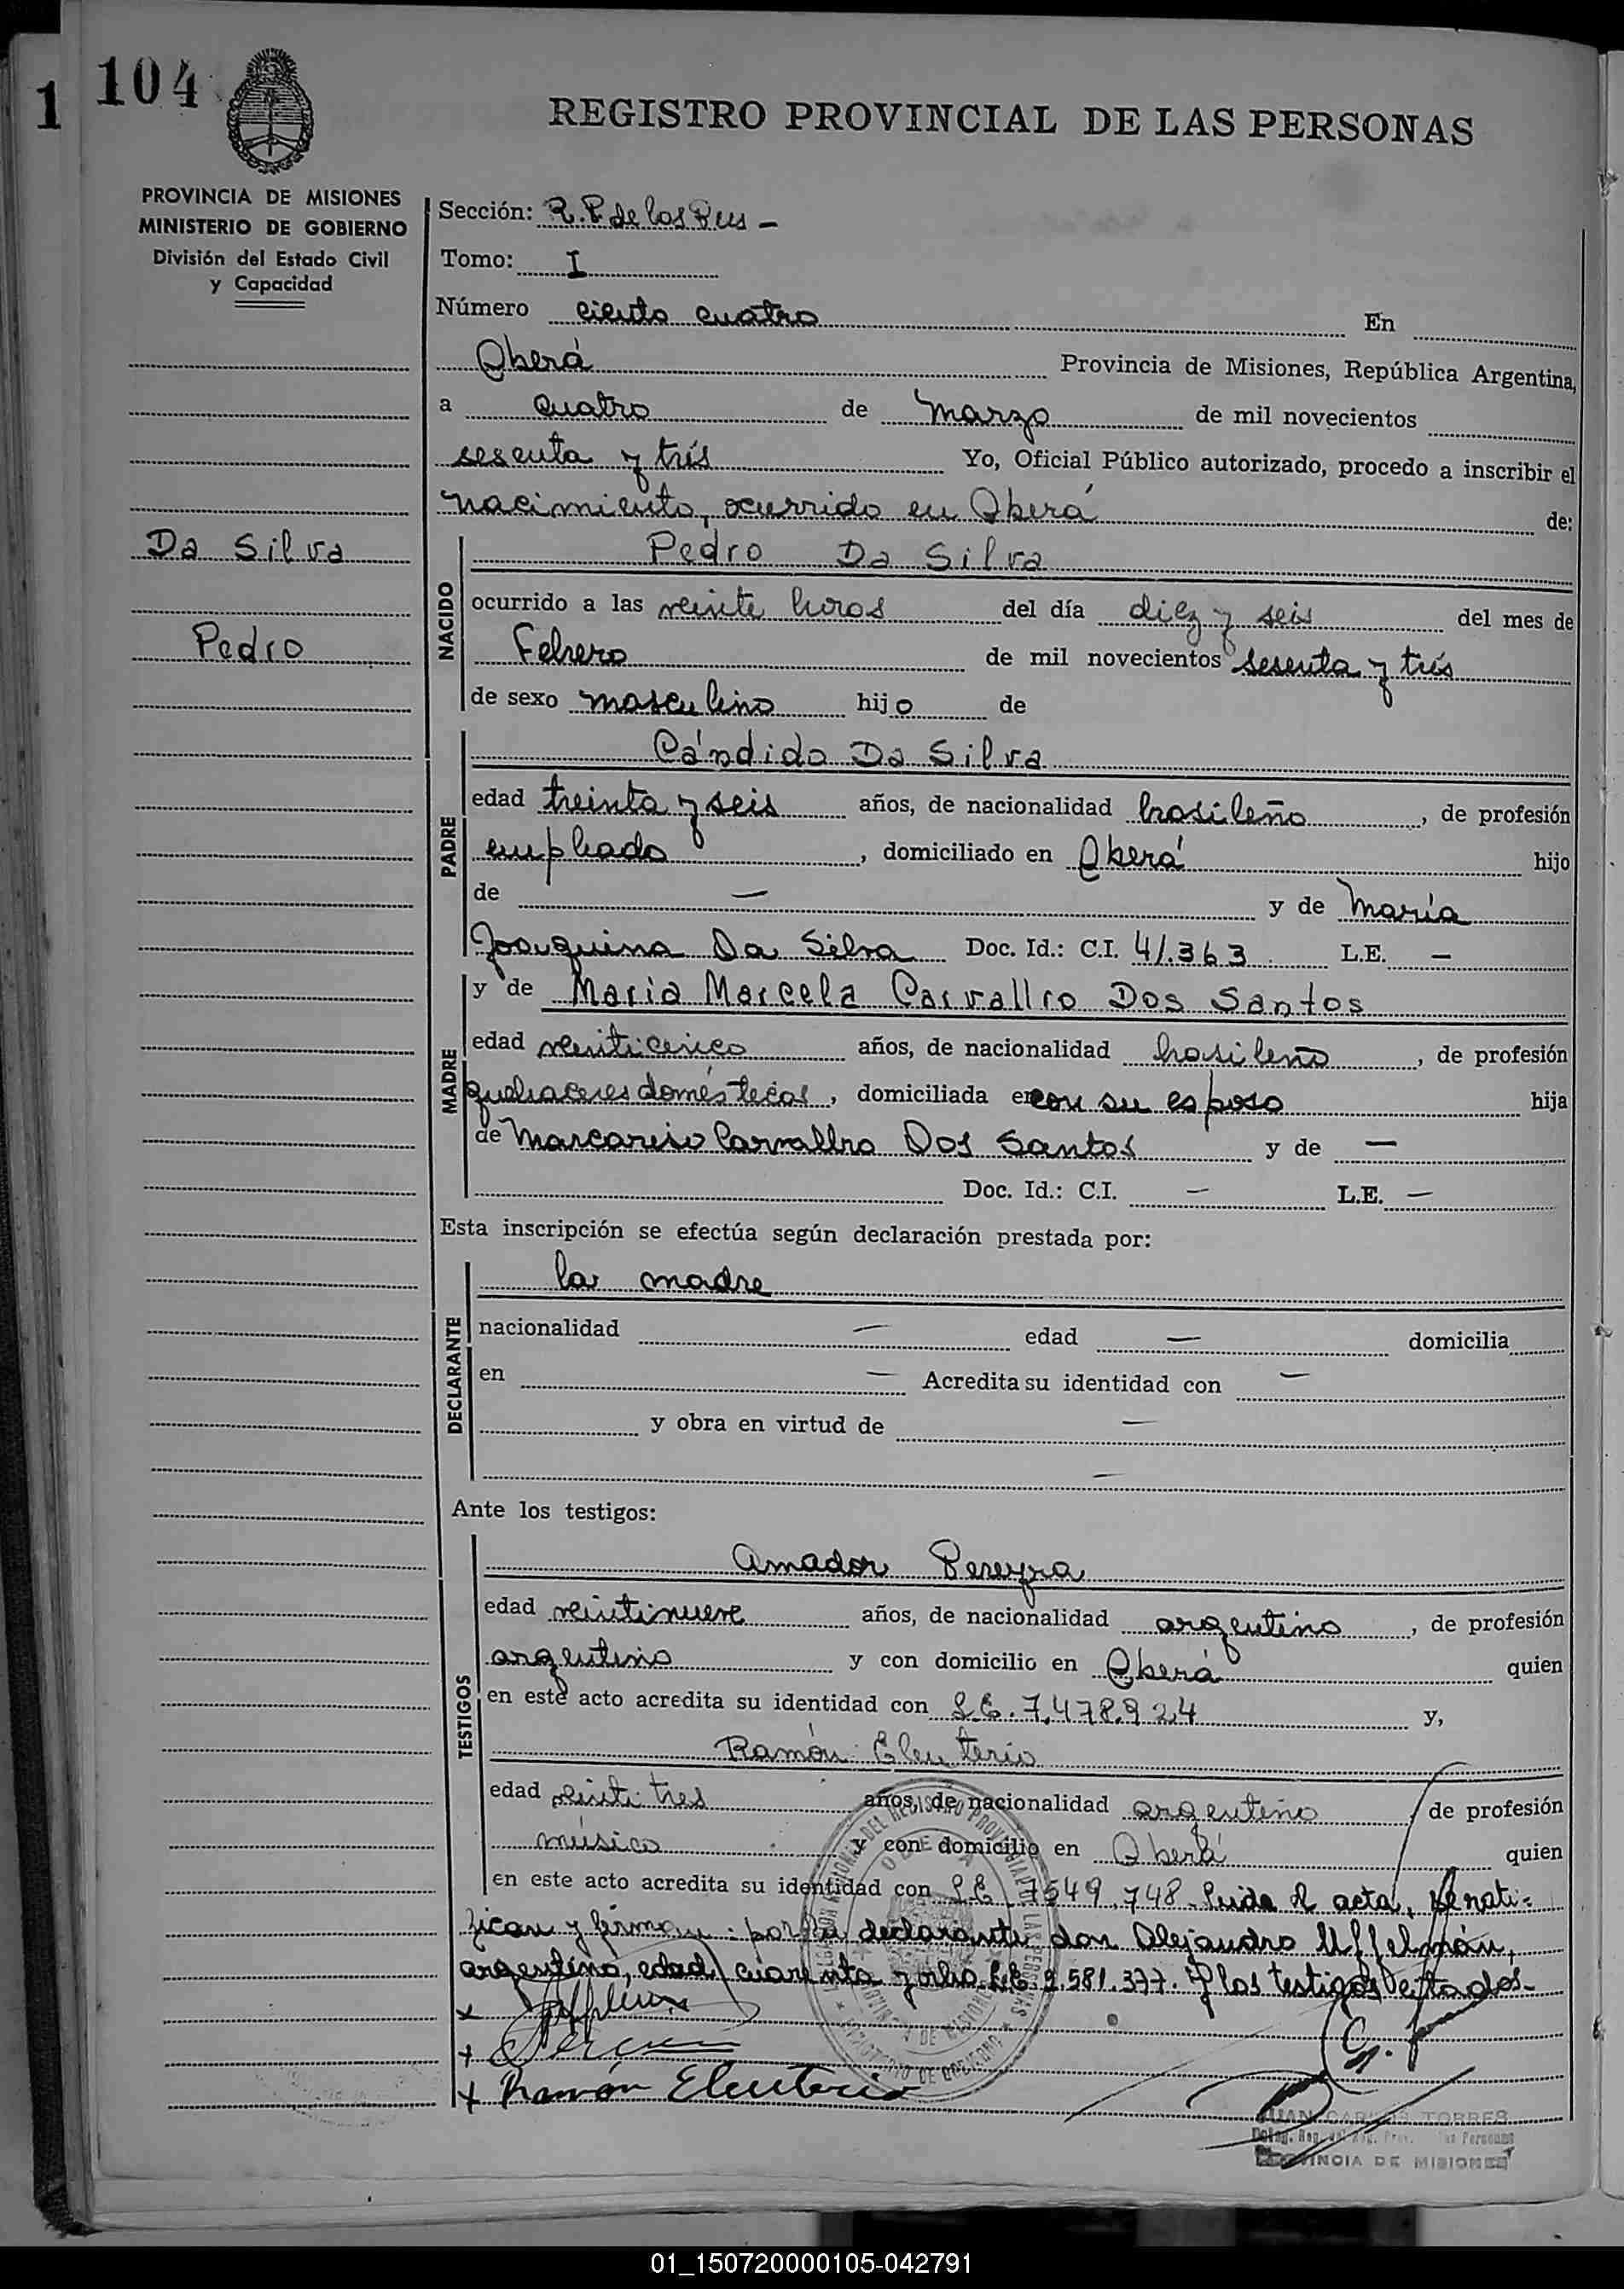 1 104
REGISTRO PROVINCIAL DE LAS PERSONAS
PROVINCIA DE MISIONES
MINISTERIO DE GOBIERNO
División del Estado Civil
y Capacidad
Da Silva
Pedro
Sección: R. P. de las Pers -
Tomo: I
Número ciento cuatro En
Oberá Provincia de Misiones, República Argentina,
a cuatro de marzo de mil novecientos
sesenta y trés Yo, Oficial Público autorizado, procedo a inscribir el
nacimiento, ocurrido en Oberá de:
NACIDO
Pedro Da Silva
ocurrido a las veinte horas del día diez y seis del mes de
Febrero de mil novecientos sesenta y trés
de sexo masculino hijo de
PADRE
Cándido Da Silva
edad treinta y seis años, de nacionalidad brasileña, de profesión
empleado, domiciliado en Oberá hijo
de — y de María
Joaquina Da Silva Doc. Id.: C.I. 41.363 L.E. —
MADRE
y de Maria Marcela Carvallro Dos Santos
edad veinticinco años, de nacionalidad brasileña, de profesión
quehaceres domésticos, domiciliada en con su esposo hija
de Marcariso Carvallro Dos Santos y de —
Doc. Id.: C.I. — L.E. —
Esta inscripción se efectúa según declaración prestada por:
DECLARANTE
la madre
nacionalidad — edad — domicilia
en — Acredita su identidad con —
y obra en virtud de —
—
Ante los testigos:
TESTIGOS
Amador Pereyra
edad veintinueve años, de nacionalidad argentino, de profesión
argentino y con domicilio en Oberá quien
en este acto acredita su identidad con L.E. 7.478.924 y,
Ramón Eleuterio
edad veintitres años, de nacionalidad argentino, de profesión
músico y con domicilio en Oberá quien
en este acto acredita su identidad con L.E. 7549.748. Leida el acta, se rati-
fican y firman: por la declarante don Alejandro Uffelmán,
argentino, edad cuarenta y ocho L.E. 2.581.377. Y los testigos citados-
x
+
+ Ramón Eleuterio
JUAN CARLOS TORRES
PROVINCIA DE MISIONES
01_150720000105-042791